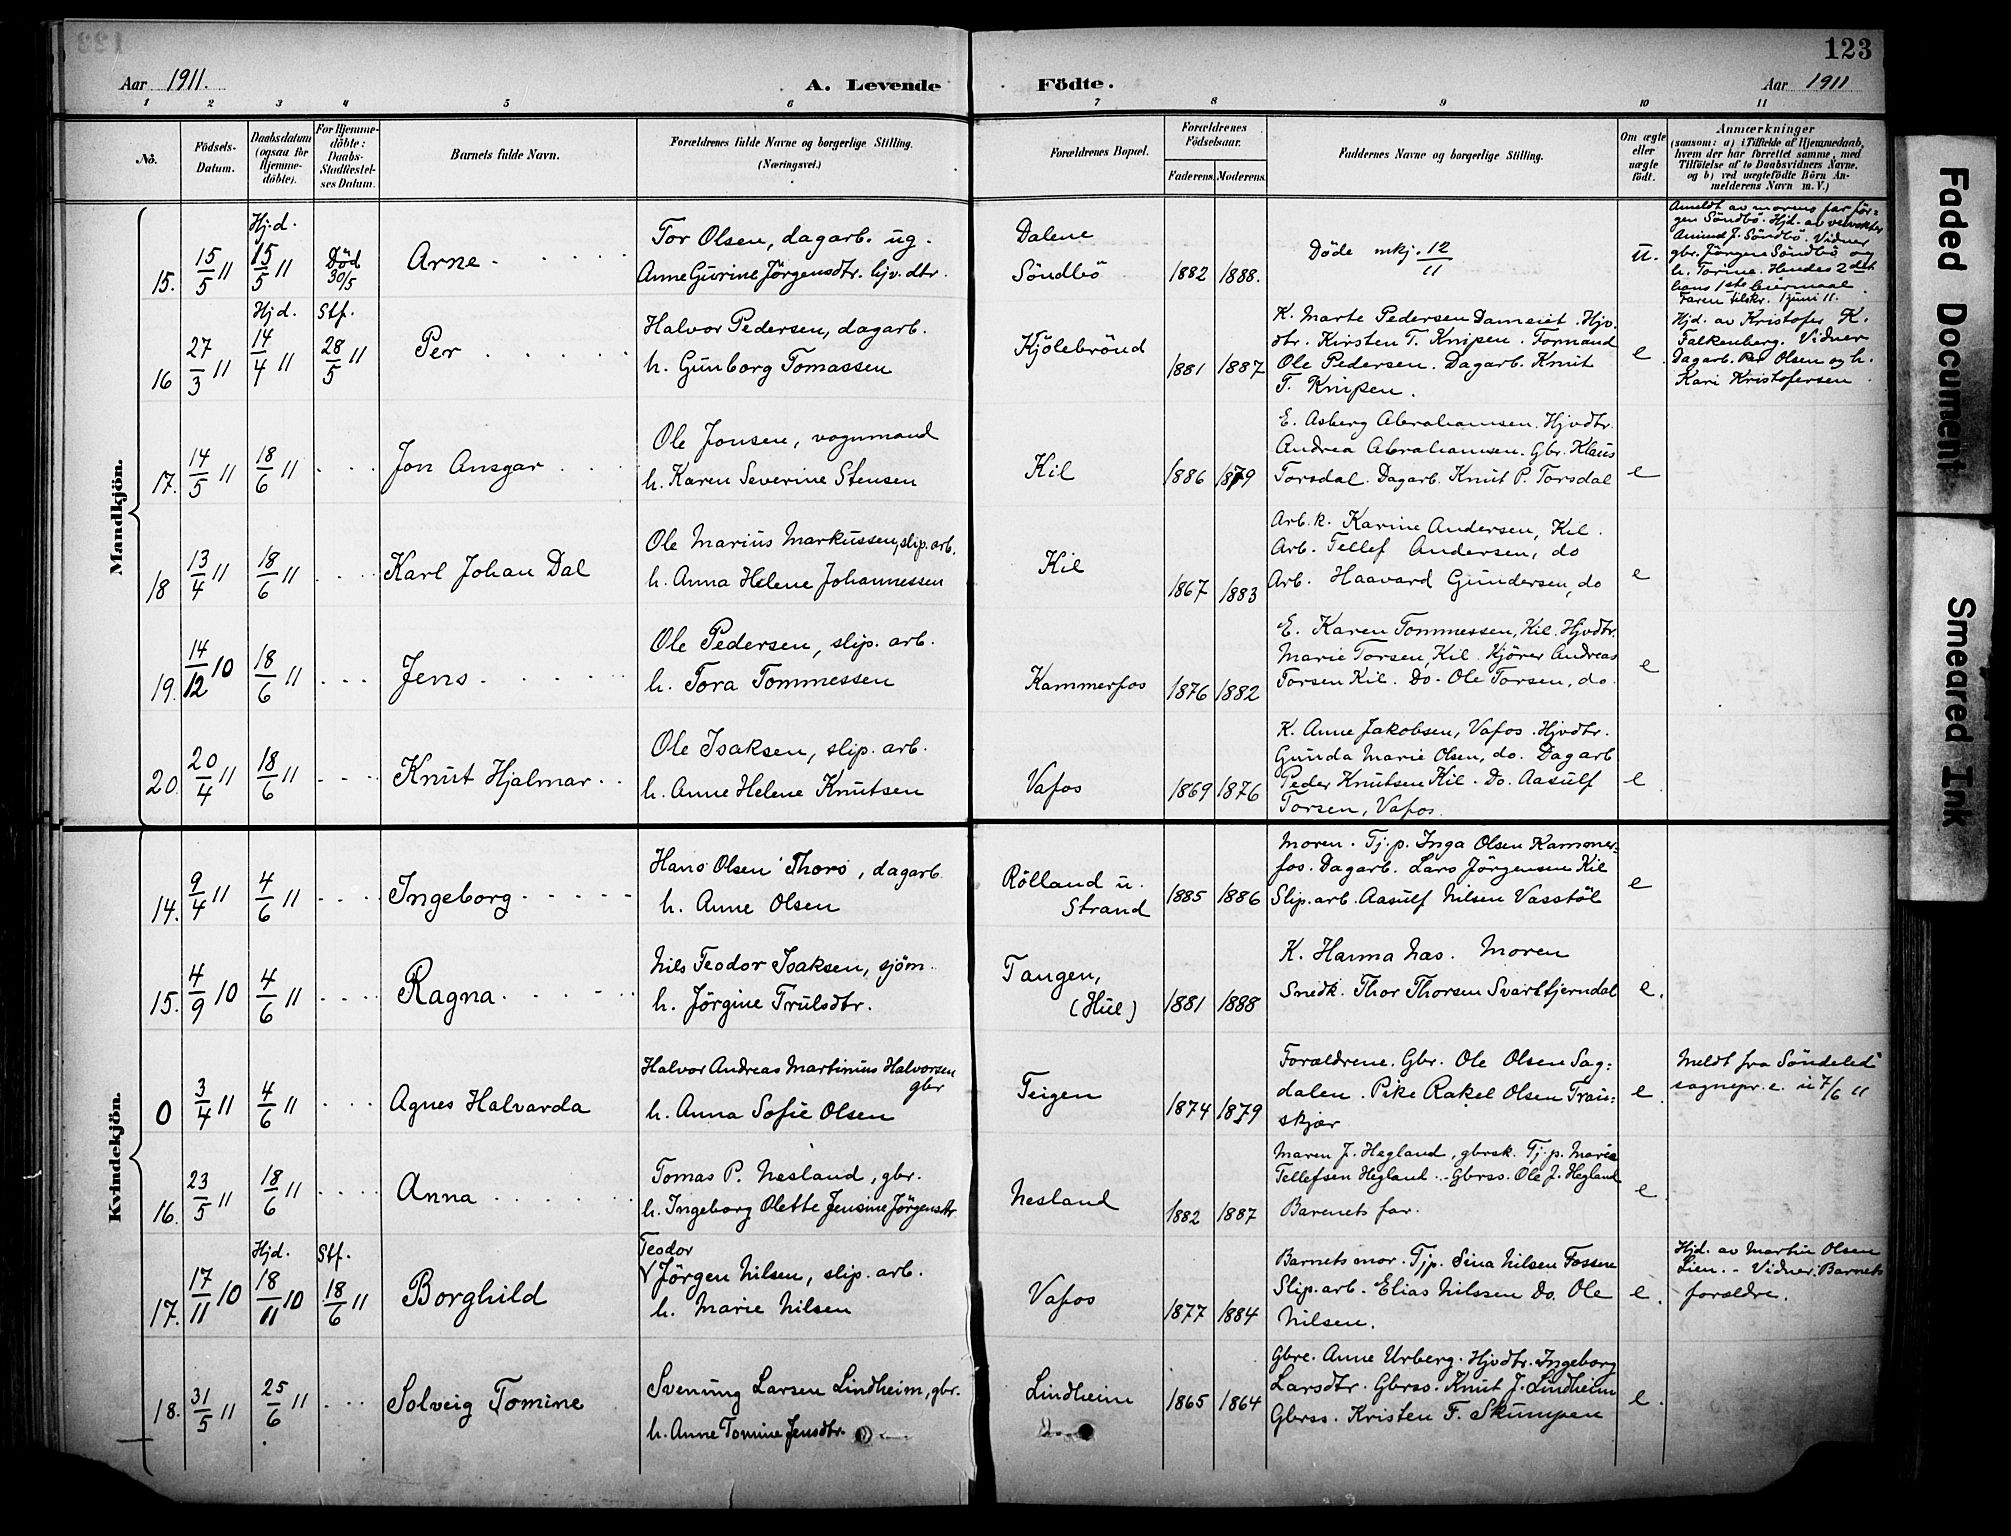 123
Aar 1911.
A. Levende
Födte.
Aar 1911
1 2 3 4 5 6 7 8 9 10 11
No.
Födsels-
Datum.
Daabsdatum
(ogsaa for
Hjemme-
döbte).
For Hjemme-
döbte:
Daabs-
Stadfæstel-
ses Datum.
Barnets fulde Navn.
Forældrenes fulde Navne og borgerlige Stilling.
(Næringsvei.)
Forældrenes Bopæl.
Forældrenes
Födselsaar.
Faderens. Moderens.
Faddernes Navne og borgerlige Stilling.
Om ægte
eller
uægte
födt.
Anmærkninger
(saasom: a) i Tilfælde af Hjemmedaab,
hvem der har forrettet samme, med
Tilföielse af to Daabsvidners Navne.
og b) ved uægtefödte Börn An-
melderens Navn m. V.)
Mandkjön.
15. 15/5 11
Hj.d.
15/5 11
Död
30/5
Arne
Tor Olsen, dagarb. ug.
Anne Gurine Jörgensdtr. hjv. dtr.
Dalene
Söndbö
1882 1888.
Döde mkj. 12/11
u.
Anmeldt av morens far Jör-
gen Söndbö. Hjd. av
Amund J. Söndbö. Vidner
gbr. Jörgen Söndbö og
h. Torine. Hendes 2det
hans 1ste leiermaal.
Faren tilskr. 1 juni 11.
16 27/3 11
Hjd.
14/4 11
Stf.
28/5 11
Per
Halvor Pedersen, dagarb.
h. Gunborg Tomassen
Kjölebrönd
1881 1887
K. Marte Pedersen Dameiet. Hjv.
dtr. Kirsten T. Knipen. Formand
Ole Pedersen. Dagarb. Knut
T. Knipen.
e.
Hjd. av Kristofer K.
Falkenberg. Vidner
Dagarb. Per Olsen og h.
Kari Kristofersen.
17. 14/5 11 18/6 11
Jon Ansgar
Ole Jonsen, vognmand
h. Karen Severine Stensen
Kil
1886 1879
E. Asberg Abrahamsen. Hjvdtr.
Andrea Abrahamsen. Gbr. Klaus
Torsdal. Dagarb. Knut P. Torsdal
e
18 13/4 11 18/6 11
Karl Johan Dal
Ole Marius Markussen, slip. arb.
h. Anna Helene Johannessen
Kil
1867 1883
Arb.k. Karine Andersen, Kil.
Arb. Tellef Andersen, do
Arb. Haavard Gundersen, do
e
19. 14/12 10 18/6 11
Jens
Ole Pedersen, slip. arb.
h. Tora Tommessen
Kammerfos
1876 1882
E. Karen Tommessen, Kil. Hjvdtr.
Marie Torsen, Kil. Kjörer Andreas
Torsen Kil. Do. Ole Torsen, do.
e
20. 20/4 11 18/6 11
Knut Hjalmar
Ole Isaksen, slip. arb.
h. Anne Helene Knutsen
Vafos
1869 1876
K. Anne Jakobsen, Vafos. Hjvdtr.
Gunda Marie Olsen, do. Dagarb
Peder Knutsen Kil. Do. Aasulf
Torsen, Vafos.
e
Kvindekjön.
14. 9/4 11 4/6 11
Ingeborg
Hans Olsen Thors, dagarb.
h. Anne Olsen
Rölland u.
Strand
1885 1886
Moren. Tj.p. Inga Olsen Kammer-
fos. Dagarb. Lars Jörgensen Kil
Slip.arb. Aasulf Nilsen Vasstöl
e
15. 4/9 10 4/6 11
Ragna
Nils Teodor Isaksen, sjöm.
h. Jörgine Trulsdtr.
Tangen,
(Hul)
1881 1888
K. Hanna Nas. Moren
Smedk. Thor Thorsen Svarttjerndal
e.
0 3/4 11 4/6 11
Agnes Halvarda
Halvor Andreas Martinius Halvorsen
gbr
h. Anna Sofie Olsen
Teigen
1874 1879
Forældrene. Gbr. Ole Olsen Sag-
dalen. Pike Rakel Olsen Trau-
skjær
e.
Meldt fra Söndeled
sognepr.e. u 7/6 11
16. 23/5 11 18/6 11
Anna
Tomas P. Nesland, gbr.
h. Ingeborg Olette Jensine Jörgensdtr.
Nesland
1882 1887
Maren J. Hegland, gbrsk. Tj.p. Marie
Tellefsen Hegland. Gbrss. Ole J. Hegland
Barnets far.
e.
17. 17/11 10
Hjd.
18/11 10
Stf.
18/6 11
Borghild
Teodor
Jörgen Nilsen, slip. arb.
h. Marie Nilsen
Vafos
1877 1884
Barnets mor. Tjp. Sina Nilsen Fossen
Slip.arb. Elias Nilssen Do. Ole
Nilsen.
e.
Hjd. av Martin Olsen
Lien. - Vidner: Barnets
forældre.
18. 31/5 11 25/6 11
Solveig Tomine
Svenung Larsen Lindheim, gbr.
h. Anne Tomine Jensdtr.
Lindheim
1865 1864
Gbre. Anne Urberg. Hjvdtr. Ingeborg
Larsdtr. Gbrss. Knut J. Lindheim
Gbrss. Kristen F. Skumpen
e.
Faded Document
Smeared Ink